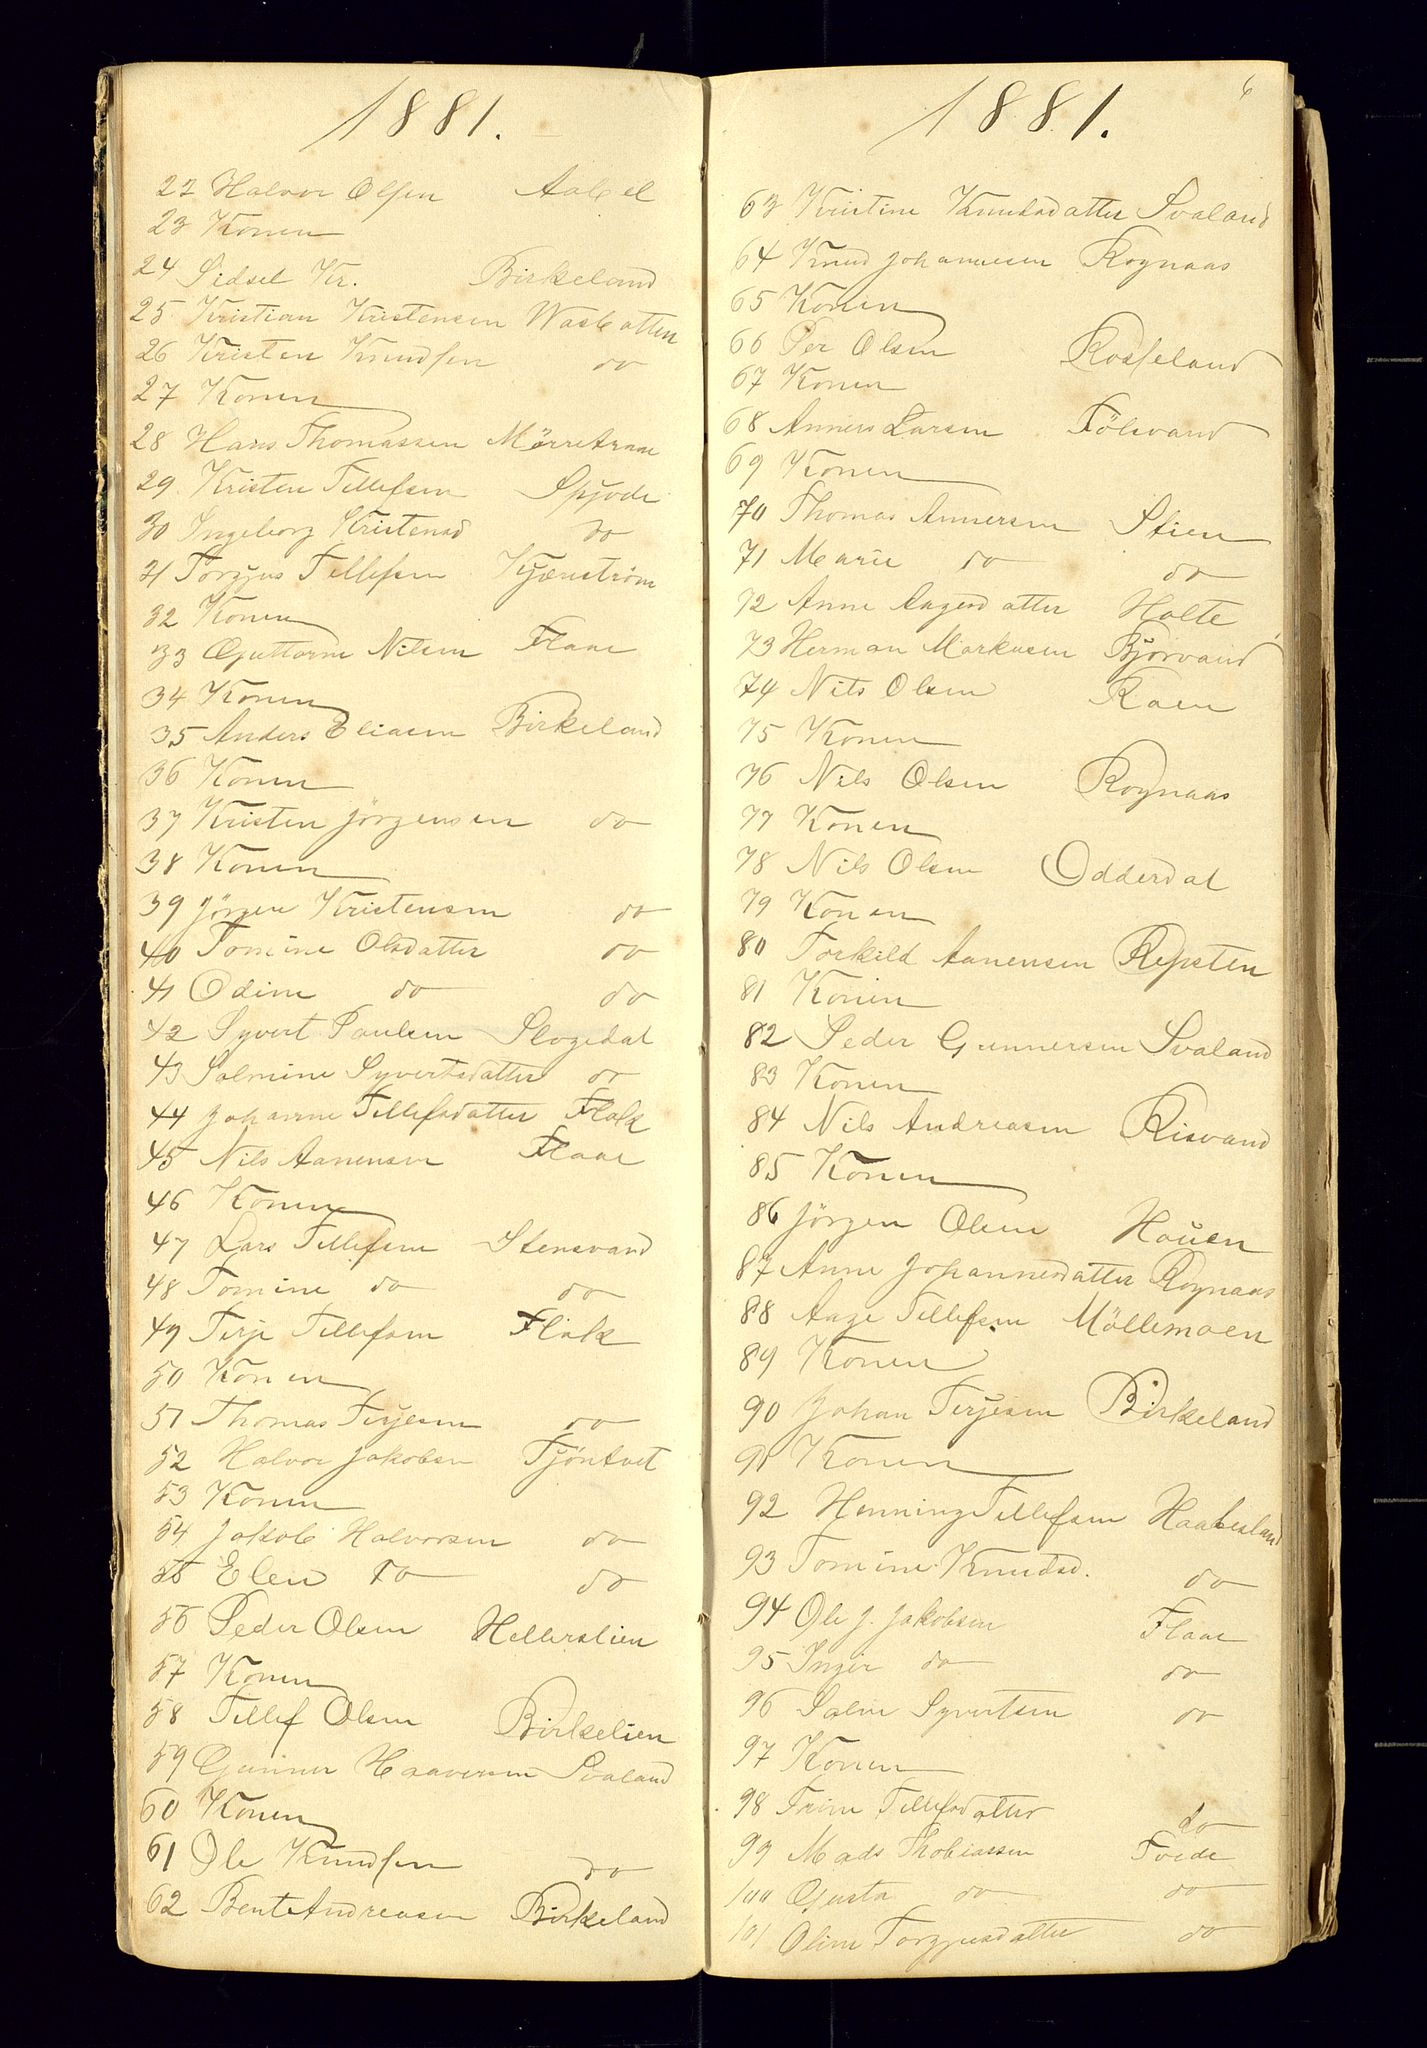 1881.
22 Halvor Olsen Aabel
23 Konen
24 Sidsel Kr. Birkeland
25 Kristian Kristensen Wasbotten
26 Kristen Knudsen do
27 Konen
28 Hans Thomassen
29 Kristen Tellefsen Spjode
30 Ingeborg Kristensd do
31 Torgjus Tellefsen Kjærstrøm
32 Konen
33 Guttorm Nilsen Flaae
34 Konen
35 Anders Eliasen Birkeland
36 Konen
37 Kristen Jörgensen do
38 Konen
39 Jörgen Kristensen do
40 Tomine Olsdatter do
41 Odine do do
42 Syvert Paulsen Slogedal
43 Salmine Syvertsdatter do
44 Johanne Tellefsdatter Flak
45 Nils Aanensen Flaae
46 Konen
47 Lars Tellefsen Stensvand
48 Tomine do do
49 Terje Tellefsen Flak
50 Konen
51 Thomas Terjesen do
52 Halvor Jakobsen Tjöntvet
53 Konen
54 Jakob Halvorsen do
55 Elen do do
56 Peder Olsen Hellerslien
57 Konen
58 Tellef Olsen Birkelien
59 Gunner Haaversen Svaland
60 Konen
61 Ole Knudsen do
62 Bent Andreasen Birkeland
1881. 6
63 Kristine Knudsdatter Svaland
64 Knud Johannesen Rognaas
65 Konen
66 Per Olsen Rosseland
67 Konen
68 Anners Larsen Fölsvand
69 Konen
70 Thomas Annersen Stien
71 Marie do do
72 Anne Aagesdatter Holte
73 Herman Markusen Bjorvand
74 Nils Olsen Roen
75 Konen
76 Nils Olsen Rognaas
77 Konen
78 Nils Olsen Odderdal
79 Konen
80 Torkild Aanensen Repsten
81 Konen
82 Peder Gunnersen Svaland
83 Konen
84 Nils Andreasen Risvand
85 Konen
86 Jörgen Olsen Hauen
87 Anne Johannesdatter Rognaas
88 Aage Tellefsen Möllemoen
89 Konen
90 Johan Terjesen Birkeland
91 Konen
92 Henning Tellefsen Haabesland
93 Tomine Knudsd. do
94 Ole J. Jakobsen Flaae
95 Inger do do
96 Salve Syvertsen do
97 Konen
98 Trine Tellefsdatter do
99 Mads Thobiassen Tvede
100 Gusta do do
101 Oline Torgjusdatter do